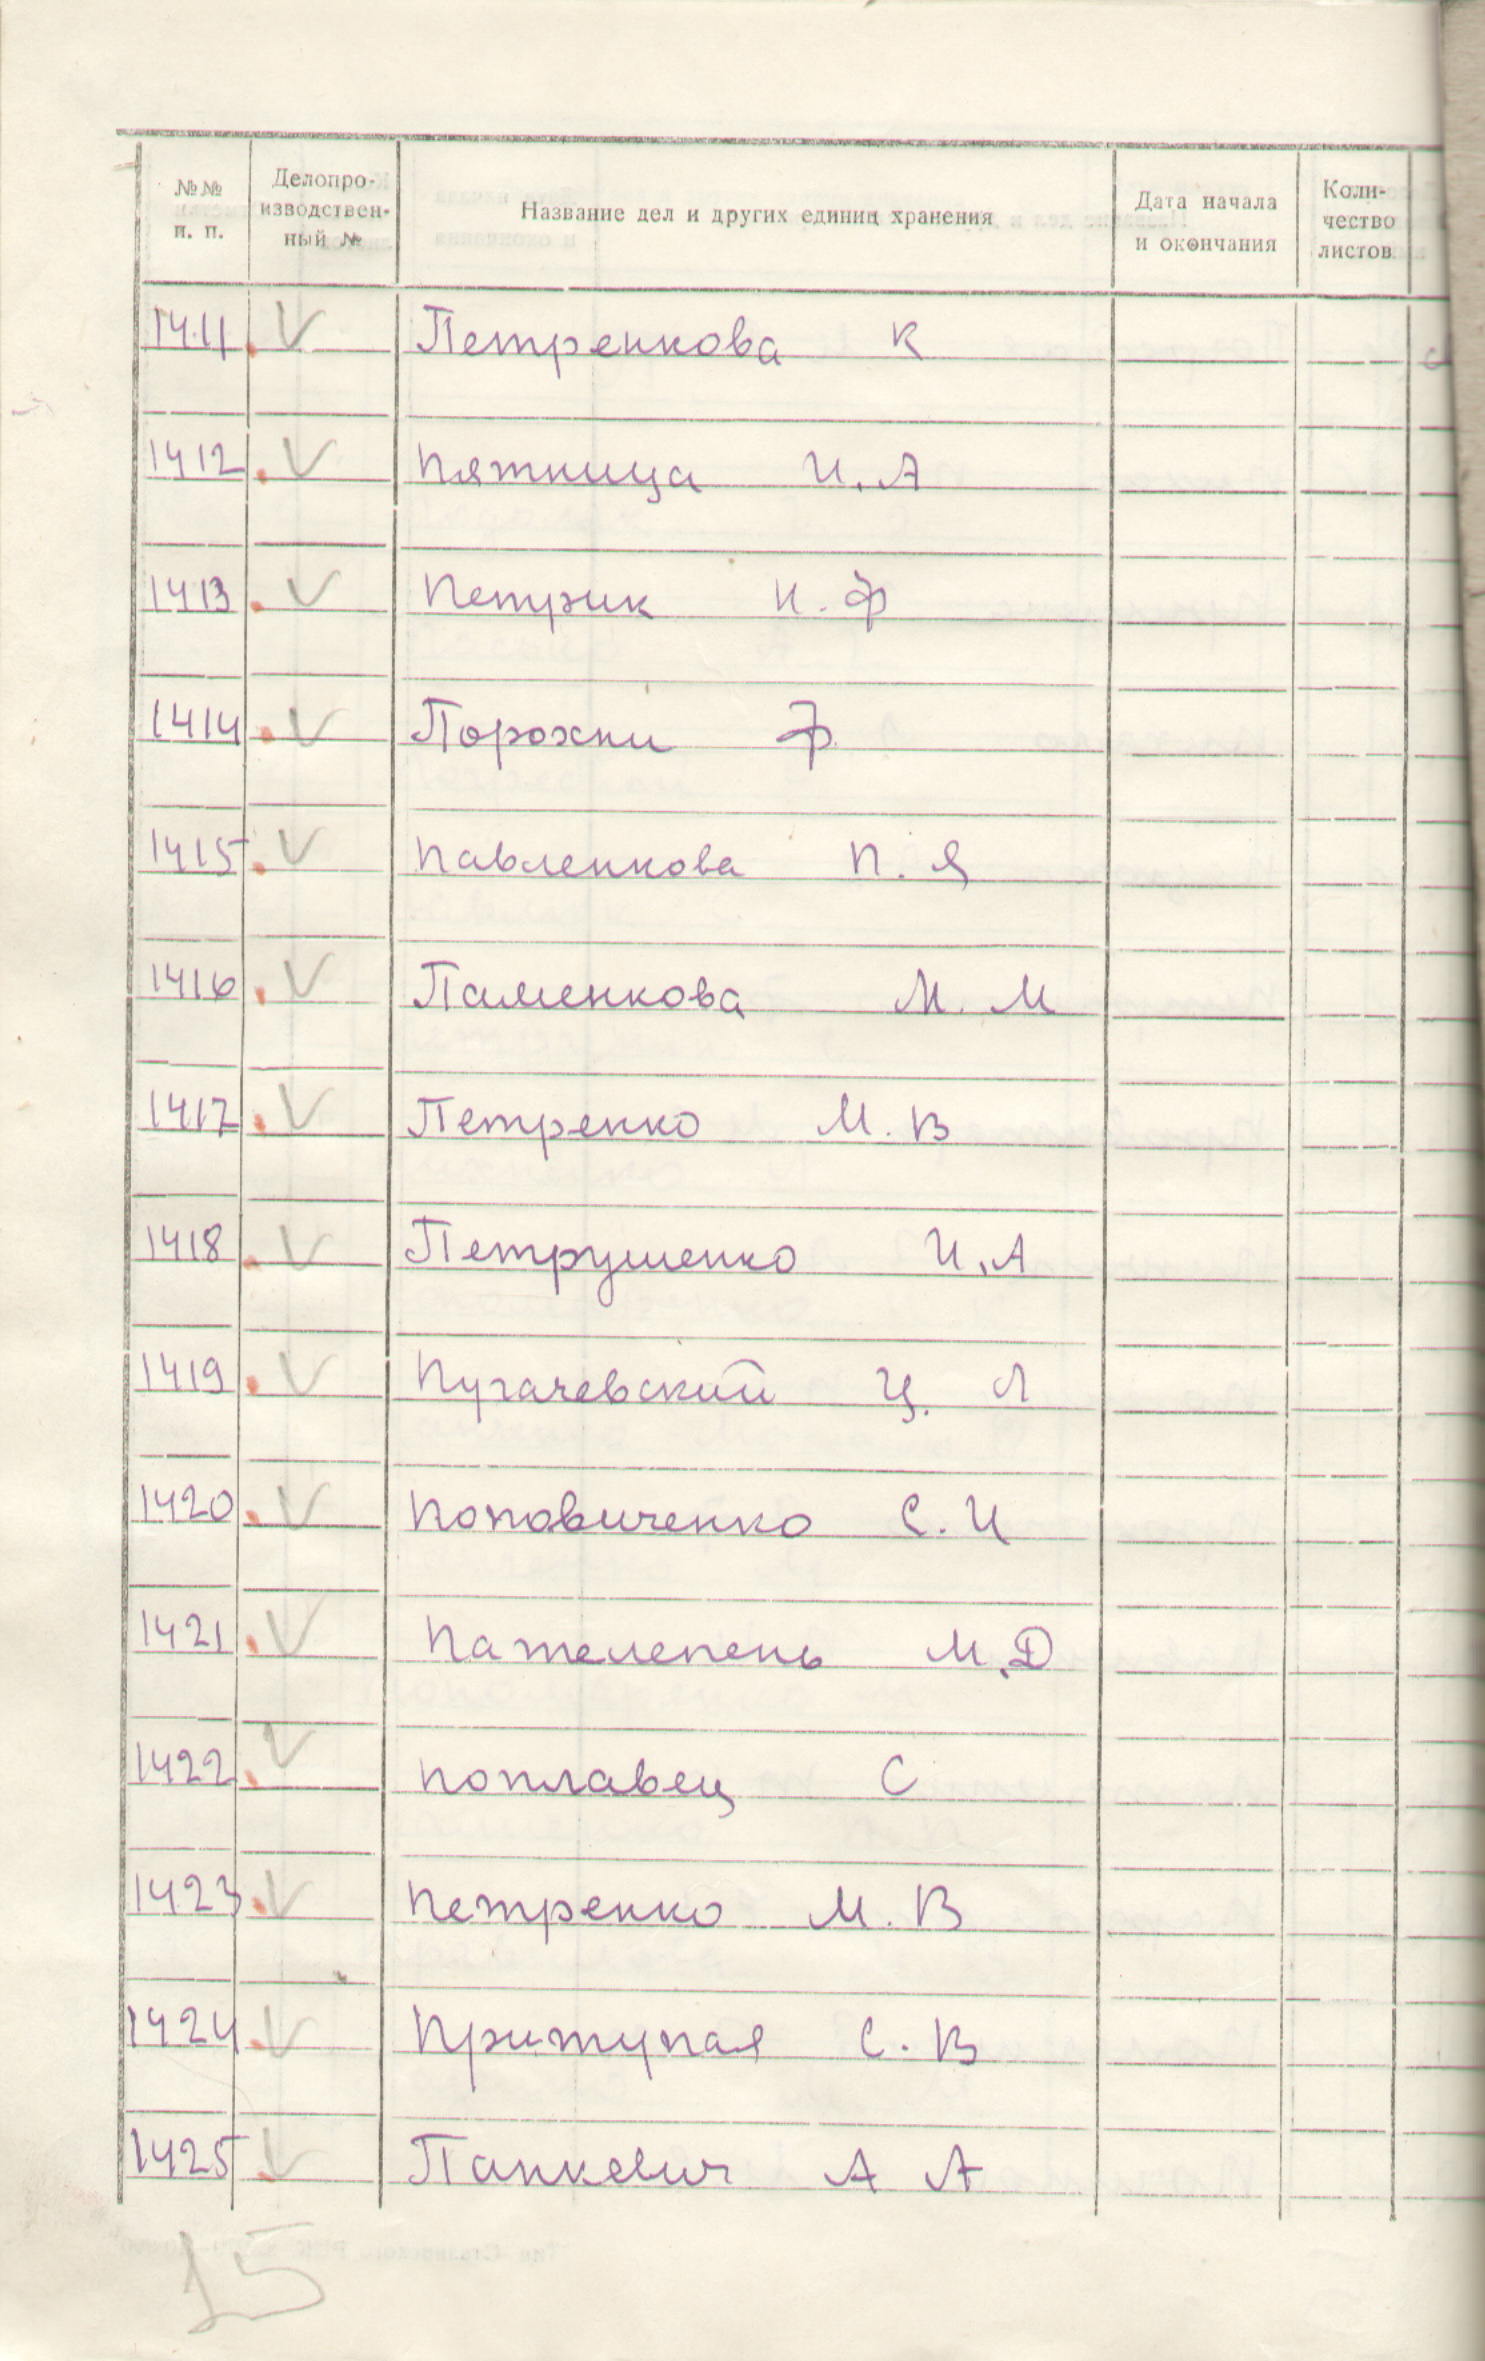 №№ п. п. Делопро-изводствен-ный № Название дел и других единиц хранения Дата начала и окончания Коли-чество листов
1411 Петренкова К
1412 Пятница И. А
1413 Петрик И. Ф
1414 Порохни Ф.
1415 Павленкова П. Я
1416 Паменкова М. М
1417 Петренко М. В
1418 Петрушенко И. А
1419 Пугачевский Ц. Л
1420 Поповиченко С. И
1421 Пателепень М. Д
1422 Поплавец С
1423 Петренко М. В
1424 Притупая С. В
1425 Папкевич А А
15